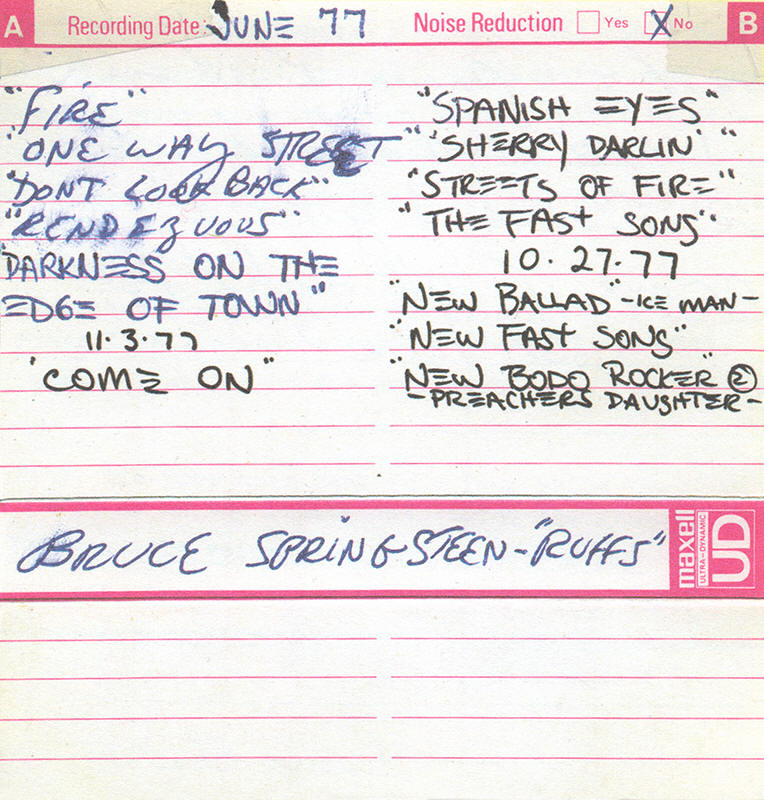 A Recording Date: JUNE 77 Noise Reduction Yes X No B
"FIRE"
"ONE WAY STREET"
"DONT LOOK BACK"
"RENDEZVOUS"
"DARKNESS ON THE
EDGE OF TOWN"
11.3.77
"COME ON"
"SPANISH EYES"
"SHERRY DARLIN'"
"STREETS OF FIRE"
"THE FAST SONG"
10.27.77
"NEW BALLAD" -ICE MAN-
"NEW FAST SONG"
"NEW BODO ROCKER" ②
-PREACHERS DAUGHTER-
BRUCE SPRINGSTEEN-"RUFFS"
maxell
ULTRA-DYNAMIC
UD